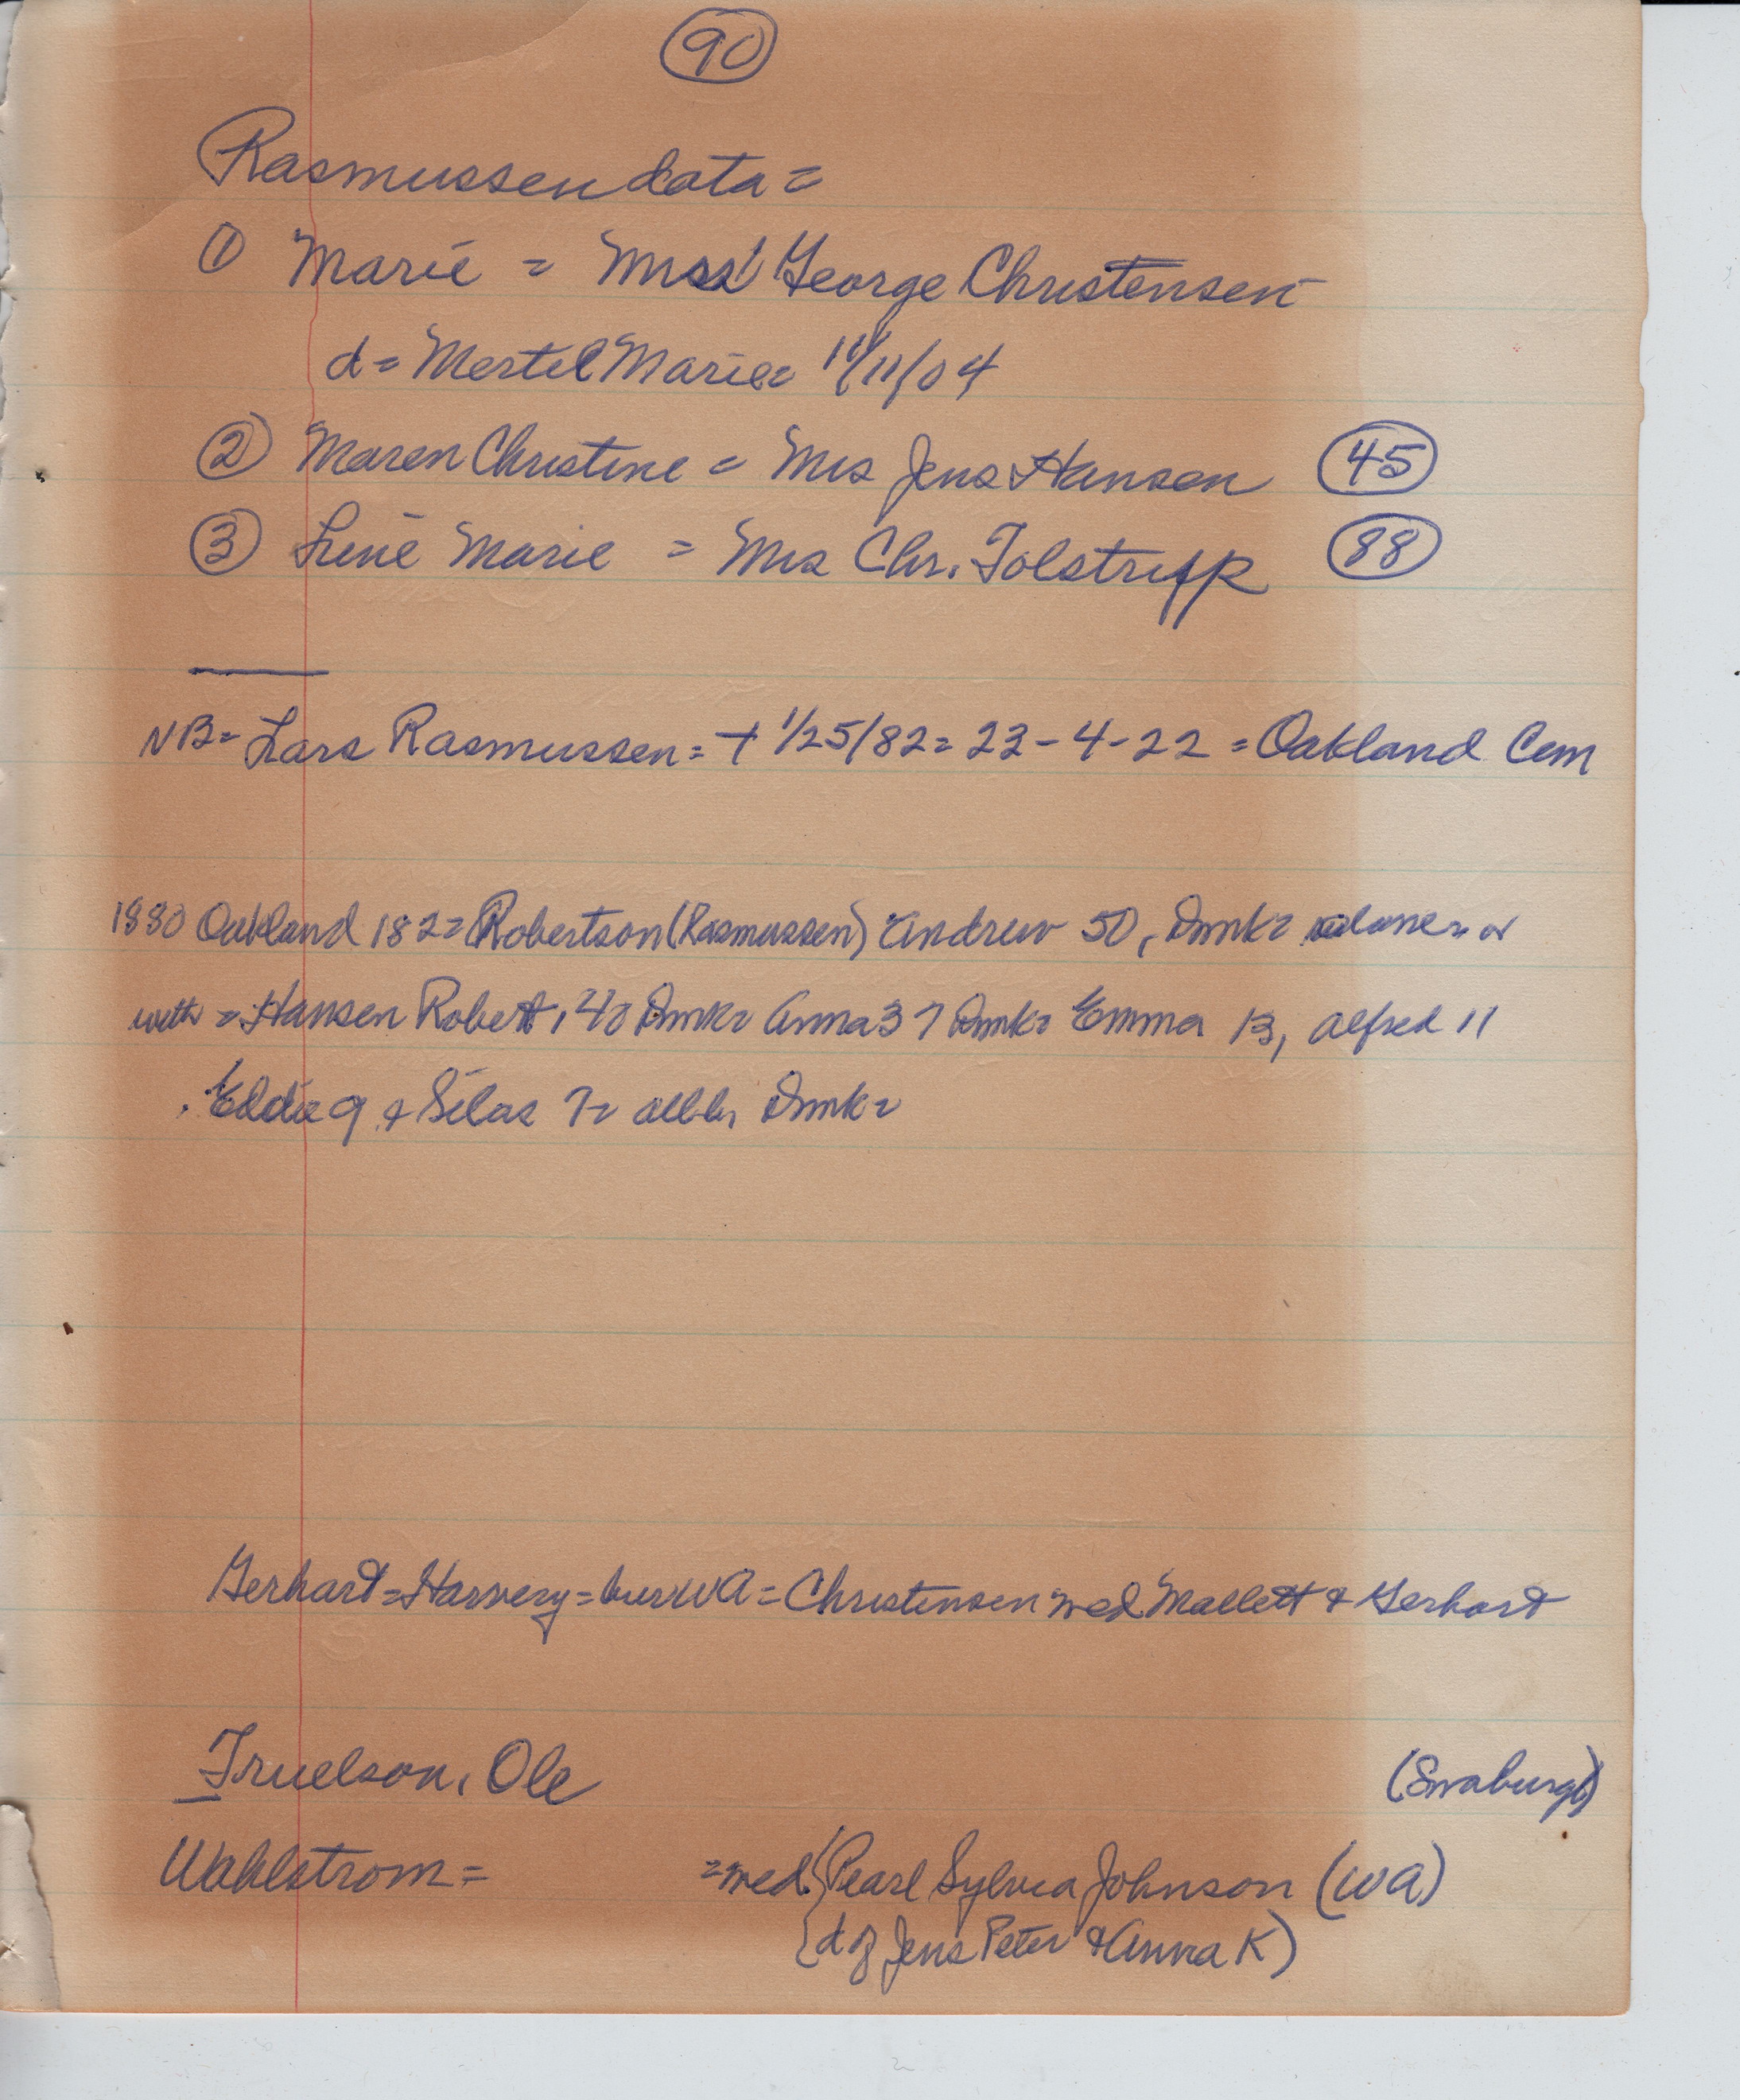 90
Rasmussen data =
① Marie = Mrs George Christensen
d = Mertel Marie = 11/11/04
② Maren Christine = Mrs Jens Hansen 45
③ Line Marie = Mrs Chr. Tolstrupp 88
NB = Lars Rasmussen = + 1/25/82 = 23-4-22 = Oakland Cem
1880 Oakland 182 = Robertson (Rasmussen) Andrew 50, Dmk = alone = or
with = Hansen Robert, 40 Dmk = Anna 37 Dmk = Emma 13, Alfred 11
Eddie 9 & Silas 7 = all b, Dmk =
Gerhart = Harvery = bur WA = Christensen med Mallett & Gerhart
Truelson, Ole (Swaburg)
Wahlstrom = = med {Pearl Sylvia Johnson (WA)
{d of Jens Peter & Anna K)